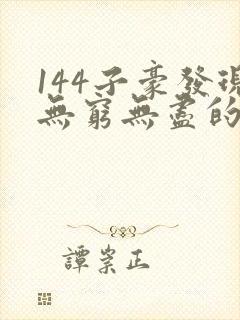 144子豪發現
無窮無盡的
譚崇正